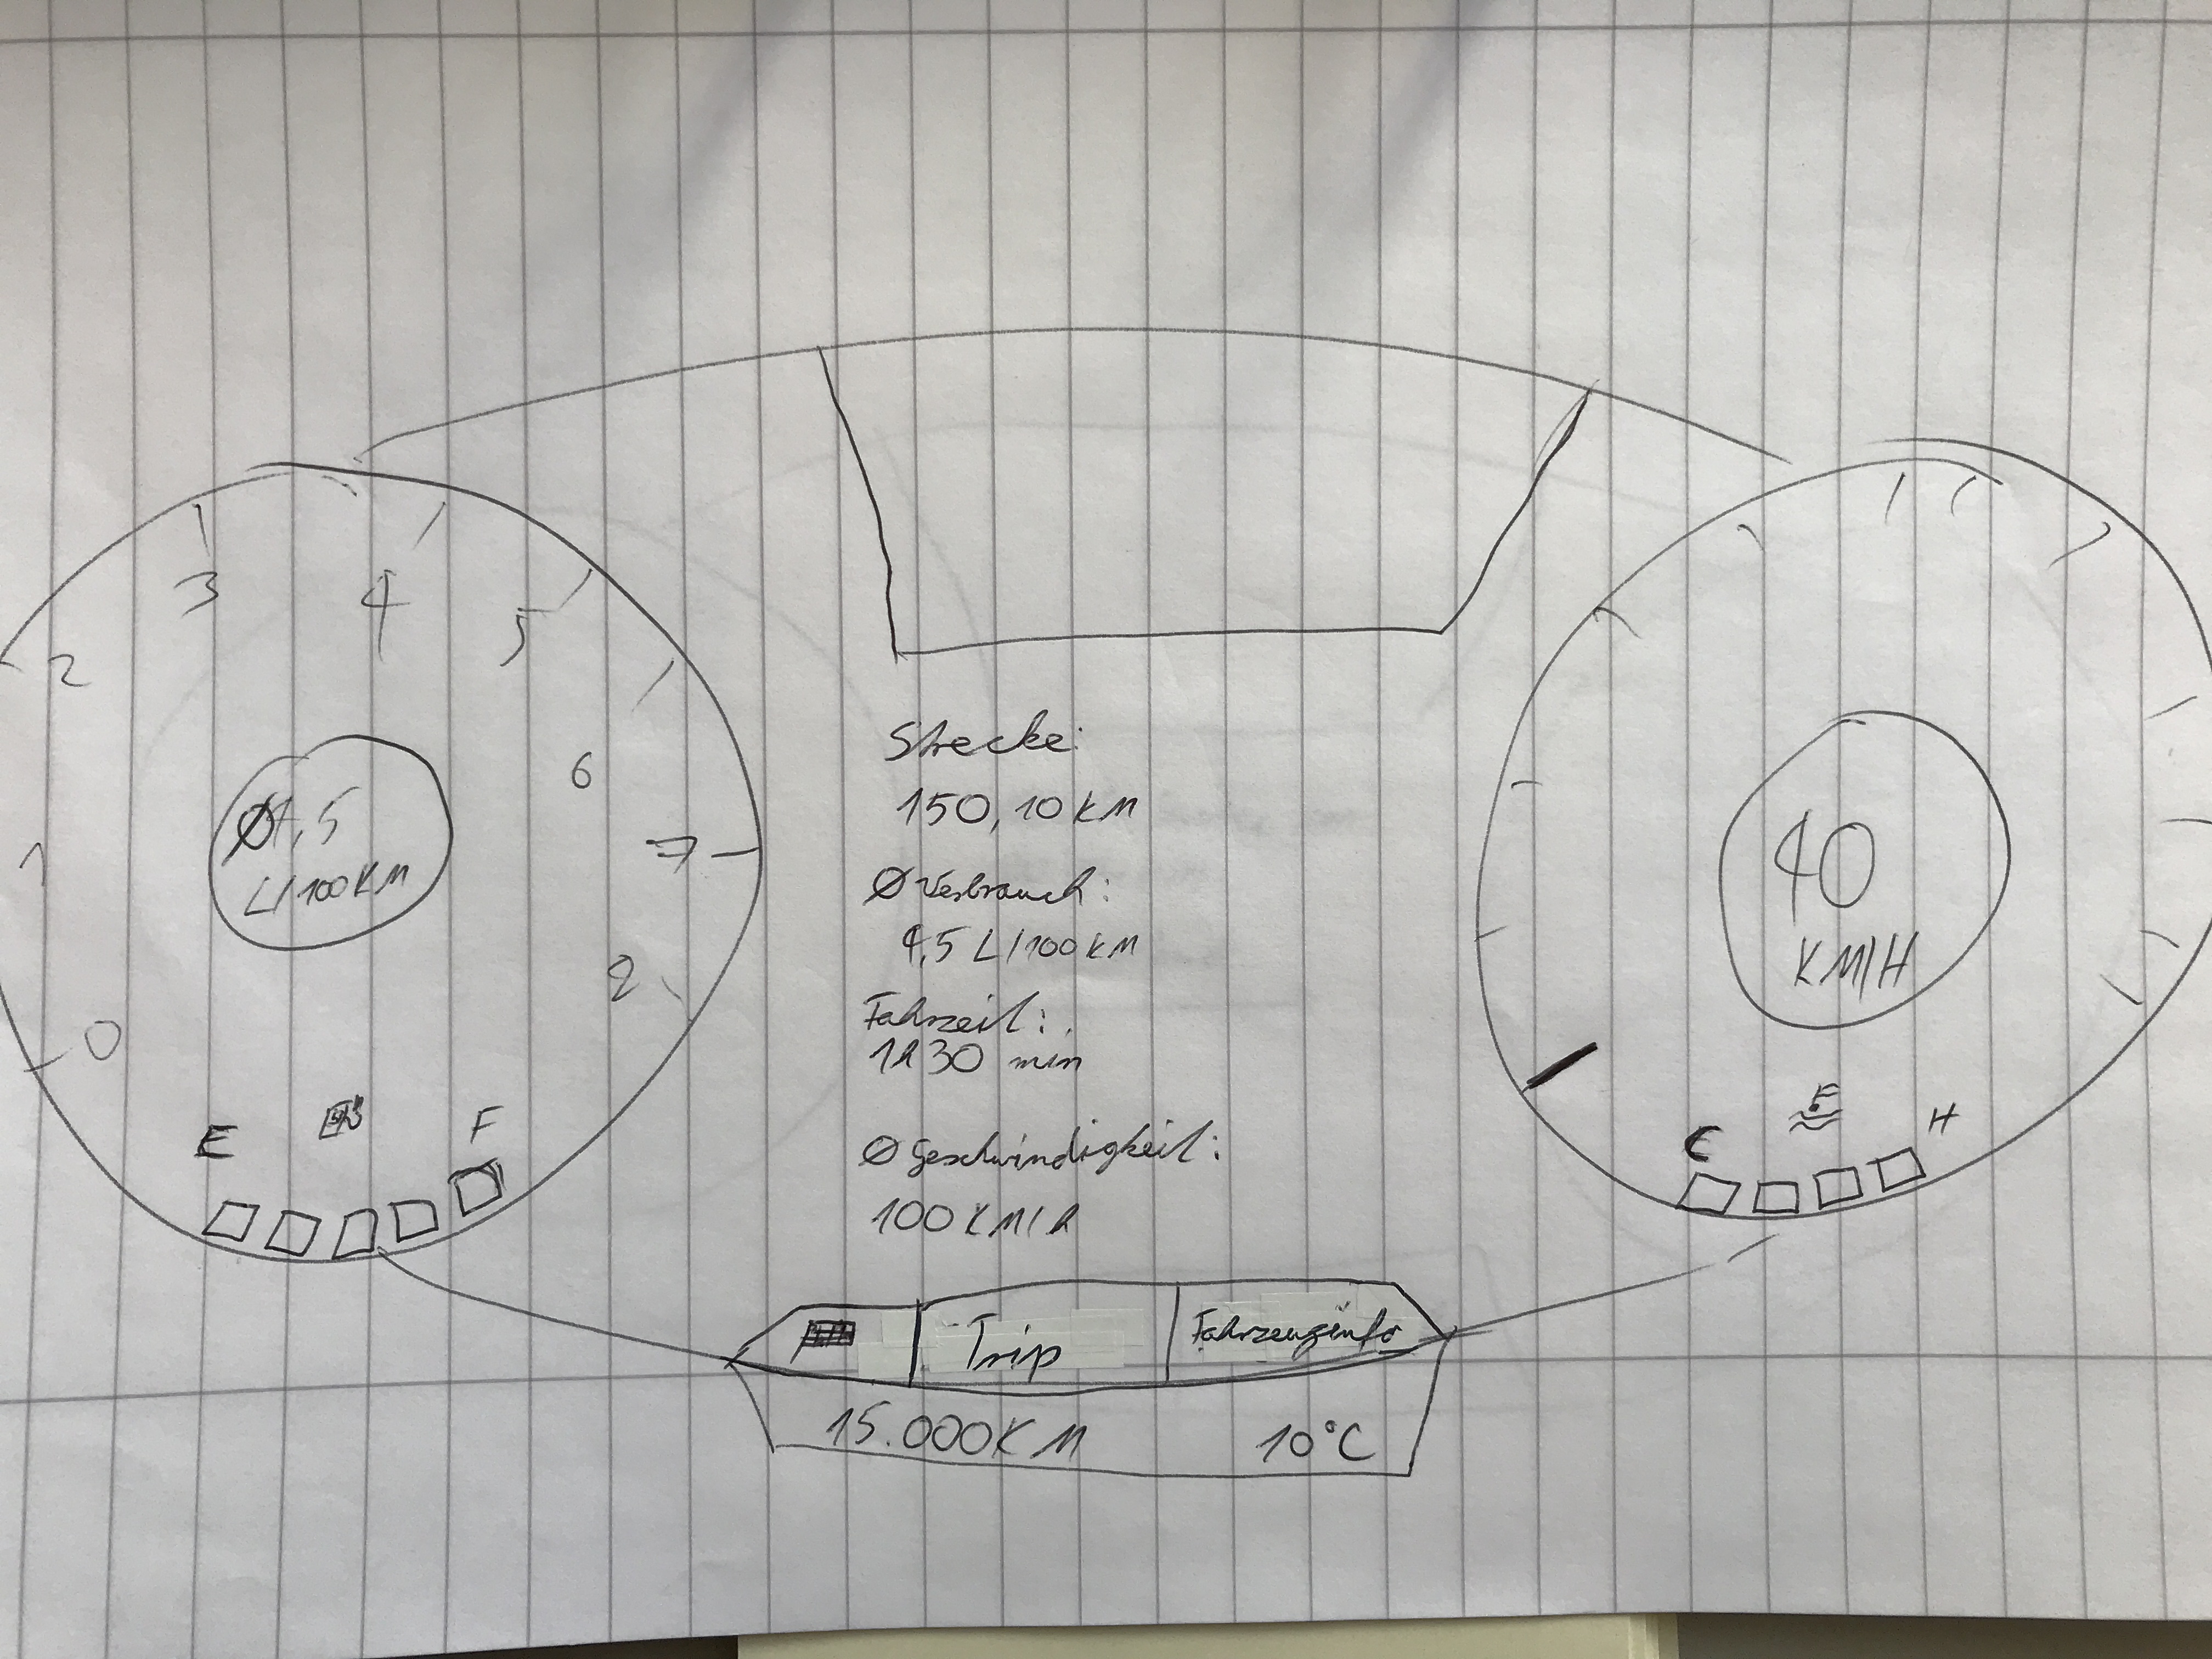 0
1
2
3
4
5
6
7
Ø
L/100KM
E
F
Strecke:
150,10km
Ø Verbrauch:
9,5 L/100km
Fahrzeit:
1h 30 min
Ø Geschwindigkeit:
100 KM/h
Trip
Fahrzeuginfo
15.000KM
10°C
40
KM/H
C
H